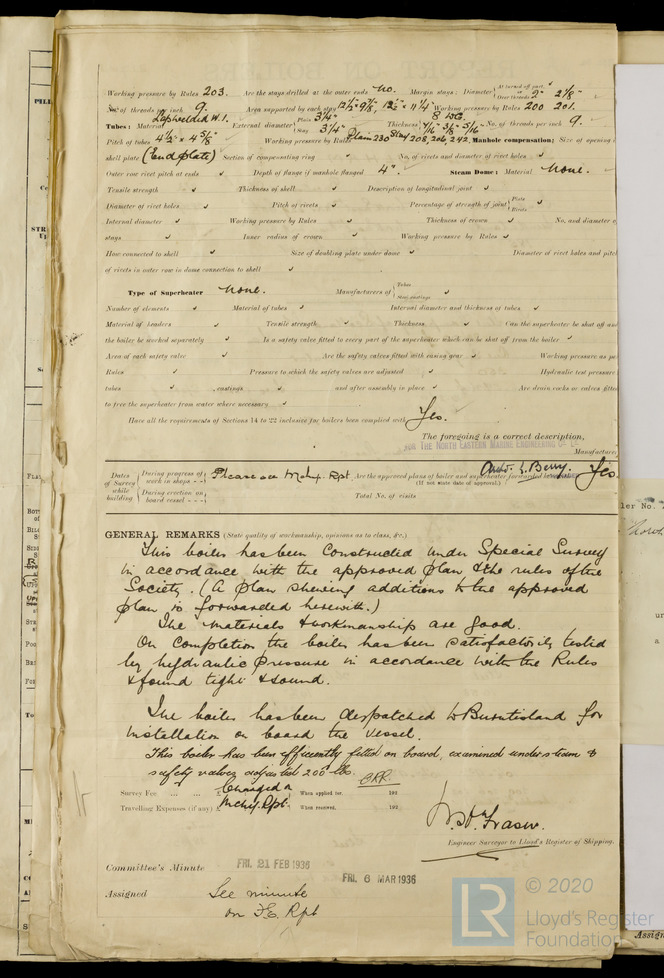 Working pressure by Rules 203. Are the stays drilled at the outer ends No. Margin stays: Diameter { At turned off part, or Over threads 2" 2⅛"
No. of threads per inch 9. Area supported by each stay Working pressure by Rules 200 201.
Tubes: Material Lapwelded W.I. External diameter { Plain 3¼" Stay 3¼" Thickness { 8 WG. 7/16" 3/8" 5/16" No. of threads per inch 9.
Pitch of tubes 4½" x 4⅝" Working pressure by Rules Plain 230 Stay 208, 206, 242. Manhole compensation: Size of opening
shell plate (End plate) Section of compensating ring No. of rivets and diameter of rivet holes
Outer row rivet pitch at ends Depth of flange if manhole flanged 4". Steam Dome: Material None.
Tensile strength Thickness of shell Description of longitudinal joint
Diameter of rivet holes Pitch of rivets Percentage of strength of joint { Plate Rivets
Internal diameter Working pressure by Rules Thickness of crown No. and diameter
stays Inner radius of crown Working pressure by Rules
How connected to shell Size of doubling plate under dome Diameter of rivet holes and pitch
of rivets in outer row in dome connection to shell
Type of Superheater None. Manufacturers of { Tubes Steel castings
Number of elements Material of tubes Internal diameter and thickness of tubes
Material of headers Tensile strength Thickness Can the superheater be shut off and
the boiler be worked separately Is a safety valve fitted to every part of the superheater which can be shut off from the boiler
Area of each safety valve Are the safety valves fitted with easing gear Working pressure as per
Rules Pressure to which the safety valves are adjusted Hydraulic test pressure
tubes , castings and after assembly in place Are drain cocks or valves fitted
to free the superheater from water where necessary
Have all the requirements of Sections 14 to 22 inclusive for boilers been complied with Yes.
The foregoing is a correct description,
FOR THE NORTH EASTERN MARINE ENGINEERING CO. LD.
Manufacturer
Dates of Survey while building { During progress of work in shops - - Please see Mchy. Rpt. Are the approved plans of boiler and superheater forwarded herewith Yes
(If not state date of approval.)
During erection on board vessel - - - Total No. of visits
GENERAL REMARKS (State quality of workmanship, opinions as to class, &c.)
This boiler has been constructed under Special Survey
in accordance with the approved plan & the rules of the
Society. (A plan shewing additions to the approved
plan is forwarded herewith.)
The materials & workmanship are good.
On completion the boiler has been satisfactorily tested
by hydraulic pressure in accordance with the Rules
& found tight & sound.
The boiler has been despatched to Burntisland for
installation on board the vessel.
This boiler has been efficiently fitted on board, examined under steam &
safety valves adjusted 206 lbs.
Survey Fee ... ... £ Charged on When applied for, 193
Travelling Expenses (if any) £ Mchy. Rpt. When received, 193
Fraser.
Engineer Surveyor to Lloyd's Register of Shipping.
Committee's Minute FRI. 21 FEB 1936
FRI. 6 MAR 1936
Assigned See minute
on F.E. Rpt
LR © 2020
Lloyd's Register
Foundation